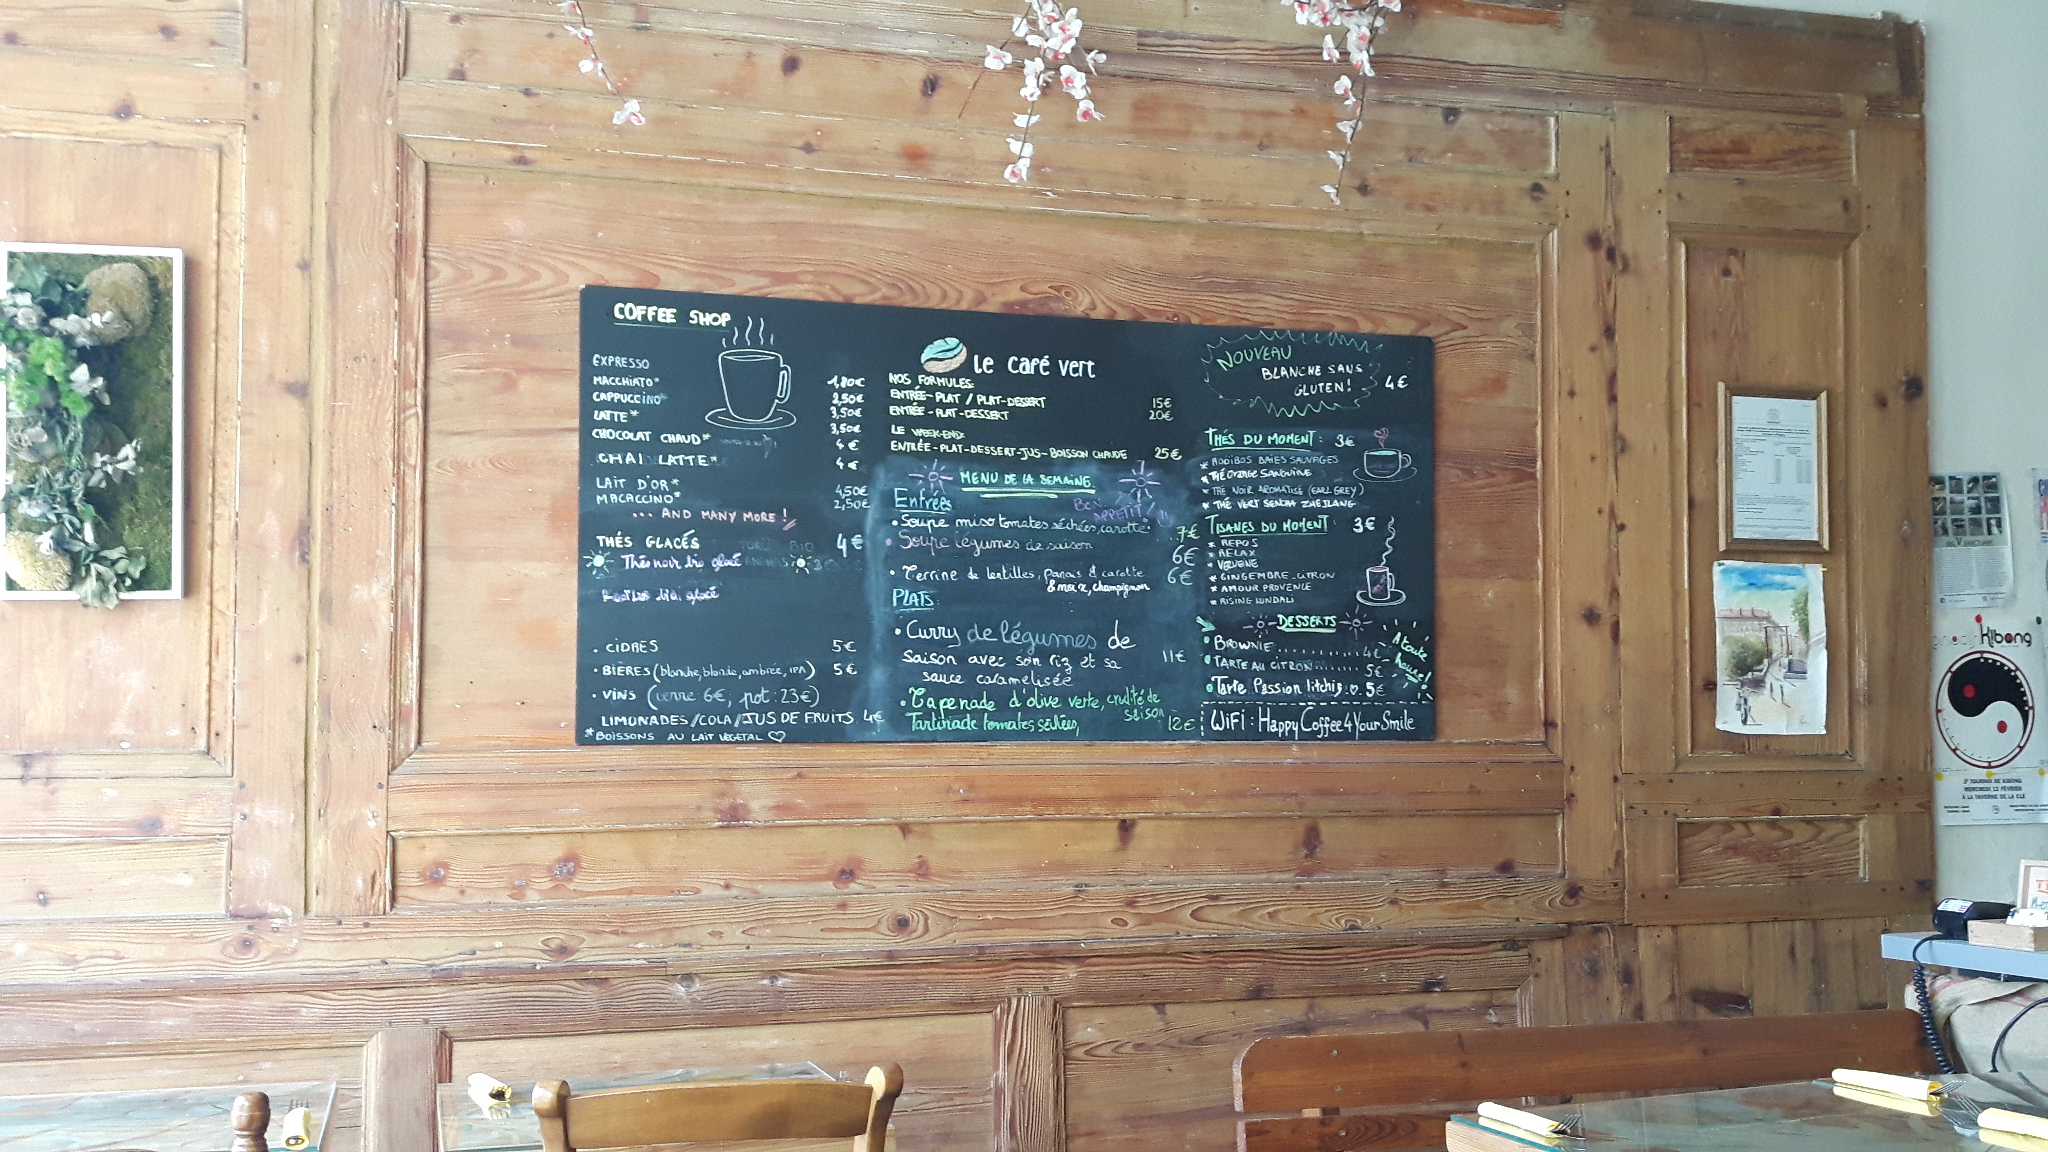 COFFEE SHOP
EXPRESSO 1,80€
MACCHIATO* 2,50€
CAPPUCCINO* 3,50€
LATTE* 3,50€
CHOCOLAT CHAUD* 4€
CHAI LATTE* 4€
LAIT D'OR* 4,50€
MACACCINO* 2,50€
... AND MANY MORE!
THÉS GLACÉS 4€
Thé noir bio glacé
. CIDRES 5€
. BIÈRES (blanche, blonde, ambrée, IPA) 5€
. VINS (verre 6€, pot: 23€)
LIMONADES/COLA/JUS DE FRUITS 4€
*BOISSONS AU LAIT VÉGÉTAL
Le Café vert
NOS FORMULES:
ENTRÉE-PLAT / PLAT-DESSERT 15€
ENTRÉE-PLAT-DESSERT 20€
LE WEEK-END:
ENTRÉE-PLAT-DESSERT-JUS-BOISSON CHAUDE 25€
MENU DE LA SEMAINE.
BON APPÉTIT!
Entrées
• Soupe miso tomates séchées, carotte. 7€
• Soupe légumes de saison 6€
• Terrine de lentilles, panais & carotte 6€
& noix, champignon
PLATS:
• Curry de légumes de
saison avec son riz et sa 11€
sauce caramélisée
• Tapenade d'olive verte, crudité de
saison
Tartinade tomates séchées, 12€
NOUVEAU
BLANCHE SANS 4€
GLUTEN!
THÉS DU MOMENT: 3€
* ROOÏBOS BAIES SAUVAGES
* THÉ ORANGE SANGUINE
* THÉ NOIR AROMATISÉ (EARL GREY)
* THÉ VERT SENCHA ZHEJIANG
TISANES DU MOMENT: 3€
* REPOS
* RELAX
* VERVEINE
* GINGEMBRE-CITRON
* AMOUR PROVENCE
* RISING KUNDALI
DESSERTS
A toute heure!
• BROWNIE .......... 4€
• TARTE AU CITRON ....... 5€
• Tarte Passion litchis .. 5€
WIFI: HappyCoffee4YourSmile
kibong
2e TOURNOI DE KIBONG
MERCREDI 12 FÉVRIER
À LA TAVERNE DE LA CLÉ